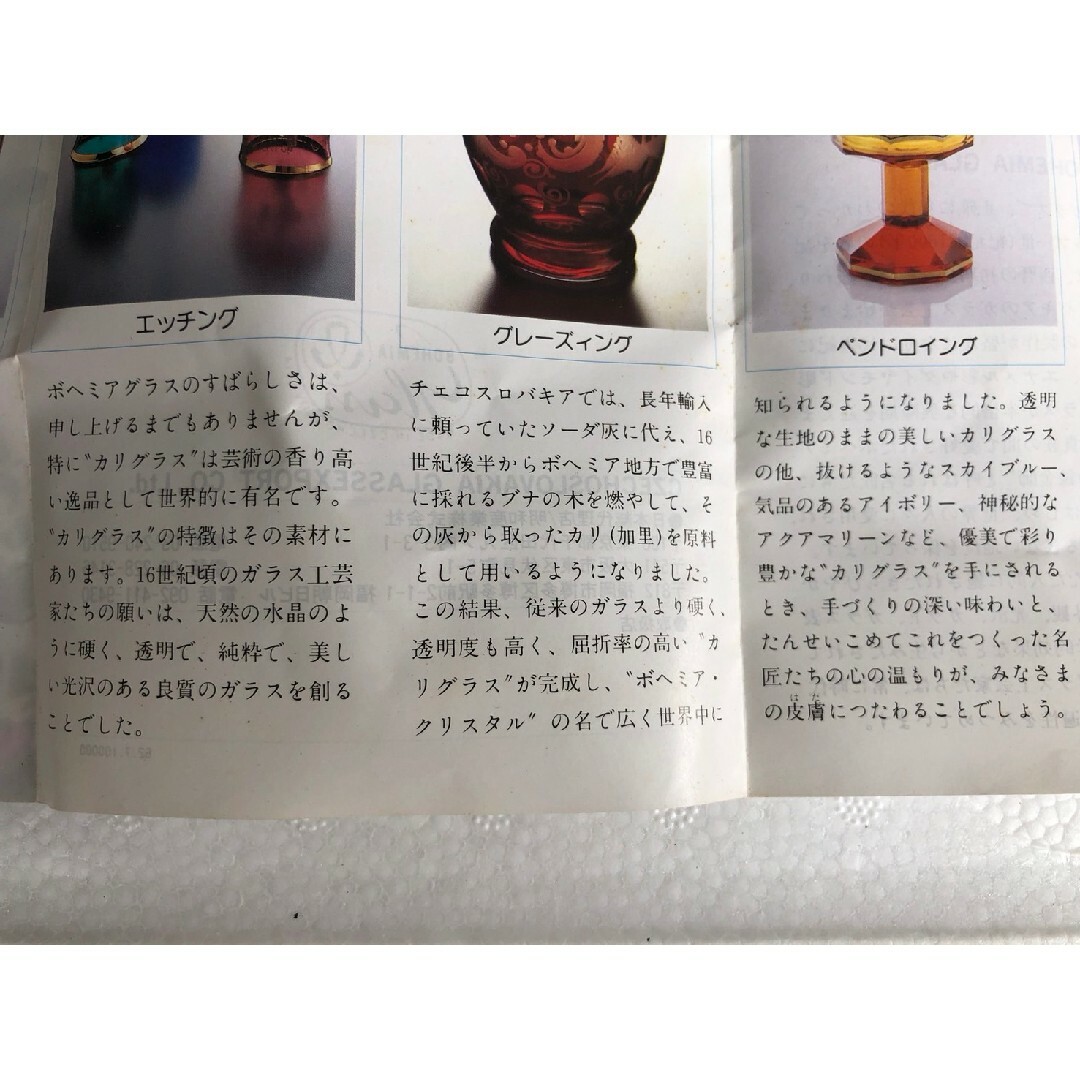 エッチング
グレーズィング
ペンドロイング
ボヘミアグラスのすばらしさは、
申し上げるまでもありませんが、
特に"カリグラス"は芸術の香り高
い逸品として世界的に有名です。
"カリグラス"の特徴はその素材に
あります。16世紀頃のガラス工芸
家たちの願いは、天然の水晶のよ
うに硬く、透明で、純粋で、美し
い光沢のある良質のガラスを創る
ことでした。
チェコスロバキアでは、長年輸入
に頼っていたソーダ灰に代え、16
世紀後半からボヘミア地方で豊富
に採れるブナの木を燃やして、そ
の灰から取ったカリ(加里)を原料
として用いるようになりました。
この結果、従来のガラスより硬く、
透明度も高く、屈折率の高い"カ
リグラス"が完成し、"ボヘミア・
クリスタル"の名で広く世界中に
知られるようになりました。透明
な生地のままの美しいカリグラス
の他、抜けるようなスカイブルー、
気品のあるアイボリー、神秘的な
アクアマリーンなど、優美で彩り
豊かな"カリグラス"を手にされる
とき、手づくりの深い味わいと、
たんせいこめてこれをつくった名
匠たちの心の温もりが、みなさま
の皮膚につたわることでしょう。
はだ